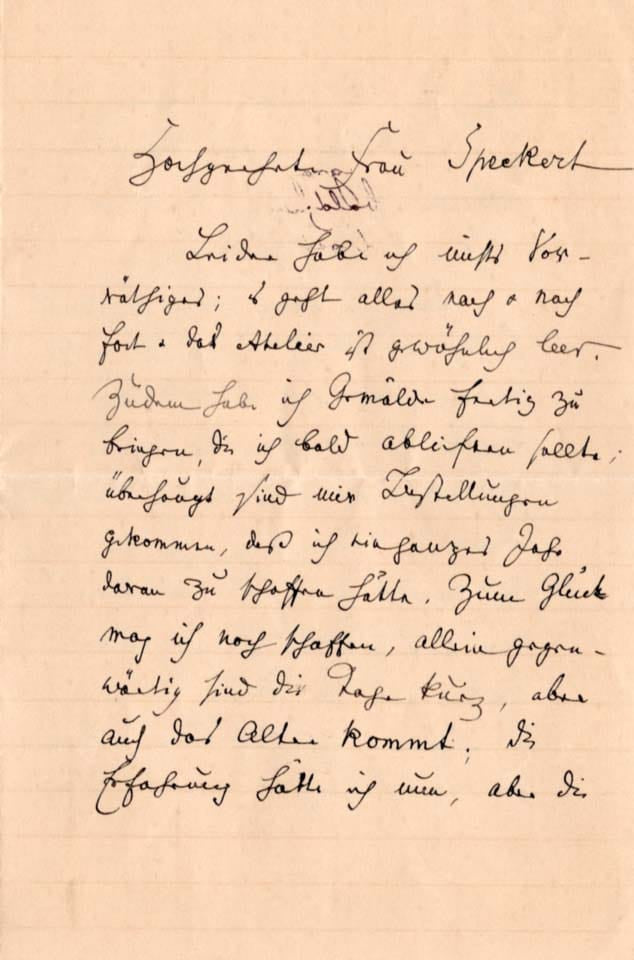 Hochgeehrte Frau Speckert
Leider habe ich nichts Vor-
räthiges; es geht alles nach & nach
fort & das Atelier ist gewöhnlich leer.
Zudem habe ich Gemälde fertig zu
bringen, die ich bald abliefern sollte;
überhaupt sind mir Bestellungen
gekommen, daß ich ein ganzes Jahr
daran zu schaffen hätte. Zum Glück
mag ich noch schaffen, allein gegen-
wärtig sind die Tage kurz, aber
auch das Alter kommt; die
Erfahrung hätte ich nun, aber die